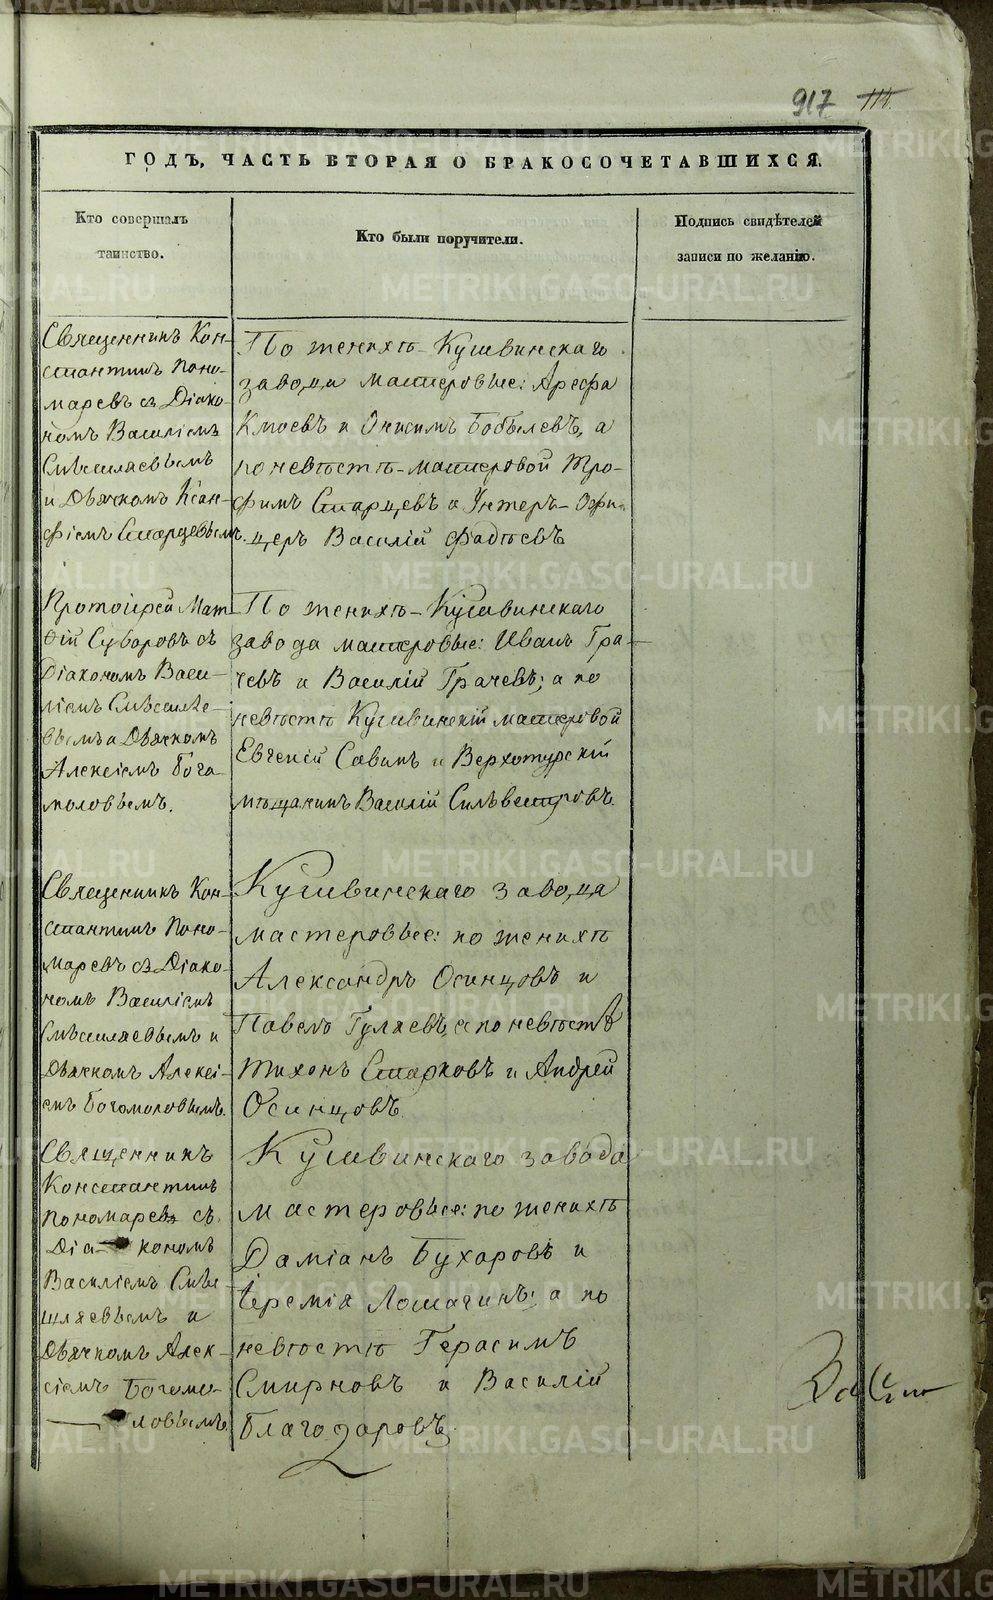 917 111.
ГОДЪ, ЧАСТЬ ВТОРАЯ О БРАКОСОЧЕТАВШИХСЯ.
Кто совершалъ
таинство.
Кто были поручители.
Подпись свидѣтелей
записи по желанію.
Священникъ Кон-
стантинъ Поно-
маревъ съ Діако-
номъ Василіемъ
и Дьячкомъ Ксан-
фіемъ Старцевымъ.
По женихѣ - Кушвинскаго
завода мастеровые: Арефа
Кмоевъ и Онисимъ Бобылевъ, а
по невѣстѣ - мастеровой Тро-
фимъ Старцевъ и Унтеръ-Офи-
церъ Василій Фадѣевъ
Протоіерей Мат-
ѳій Суворовъ съ
Діакономъ Васи-
ліемъ
вымъ и Дьячкомъ
Алексіемъ Бого-
моловымъ.
По женихѣ - Кушвинскаго
завода мастеровые: Иванъ Гра-
чевъ и Василій Грачевъ; а по
невѣстѣ Кушвинскій мастеровой
Евгеній Савинъ и Верхотурскій
мѣщанинъ Василій Сильвестровъ.
Священникъ Кон-
стантинъ Поно-
маревъ съ Діако-
номъ Василіемъ
и
Дьячкомъ Алексі-
емъ Богомоловымъ.
Кушвинскаго завода
мастеровые: по женихѣ
Александръ Осинцовъ и
Павелъ Гуляевъ, а по невѣстѣ
Тихонъ Старковъ и Андрей
Осинцовъ.
Священникъ
Константинъ
Пономаревъ съ
Діа- кономъ
Василіемъ
и
Дьячкомъ Алек-
сіемъ Богомо-
ловымъ
Кушвинскаго завода
мастеровые: по женихѣ
Даміанъ Бухаровъ и
Іеремія Лошагинъ; а по
невѣстѣ Герасимъ
Смирновъ и Василій
Благодаровъ.
METRIKI.GASO-URAL.RU